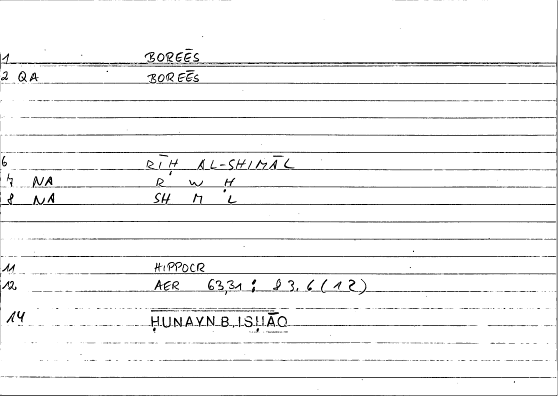 1 BOREĒS
2 QA BOREĒS
6 RĪḤ AL-SHIMĀL
7 NA R W Ḥ
8 NA SH M L
11 HIPPOCR
12 AER 63,31 : 83,6 (12)
14 ḤUNAYN B. ISḤĀQ